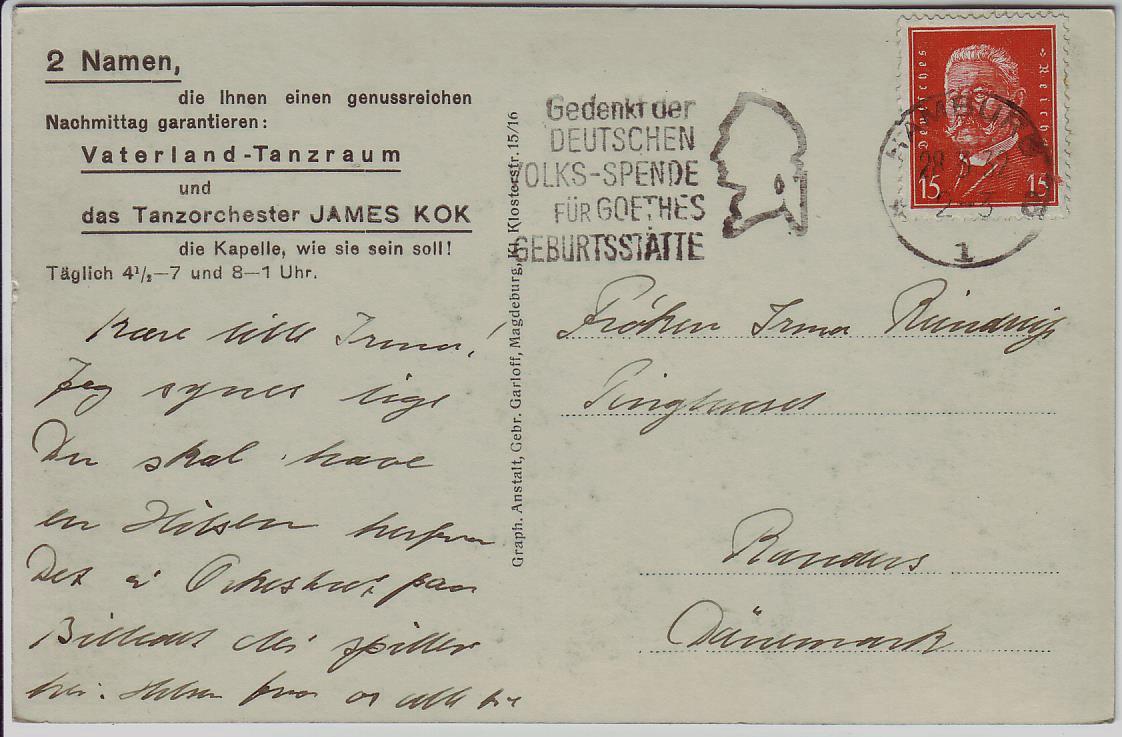 2 Namen,
die Ihnen einen genussreichen
Nachmittag garantieren:
Vaterland-Tanzraum
und
das Tanzorchester JAMES KOK
die Kapelle, wie sie sein soll!
Täglich 4½—7 und 8—1 Uhr.
Kære lille Irma!
Jeg synes lige
Du skal have
en Hilsen herfra
Det er Orkestret paa
Billedet der spiller
her. Hilsen fra os alle
Graph. Anstalt, Gebr. Garloff, Magdeburg, Kl. Klosterstr. 15/16
Gedenkt der
DEUTSCHEN
VOLKS-SPENDE
FÜR GOETHES
GEBURTSSTÄTTE
Deutsches Reich
15 15
HAMBURG
1
Fröken Irma
Randers
Dänemark